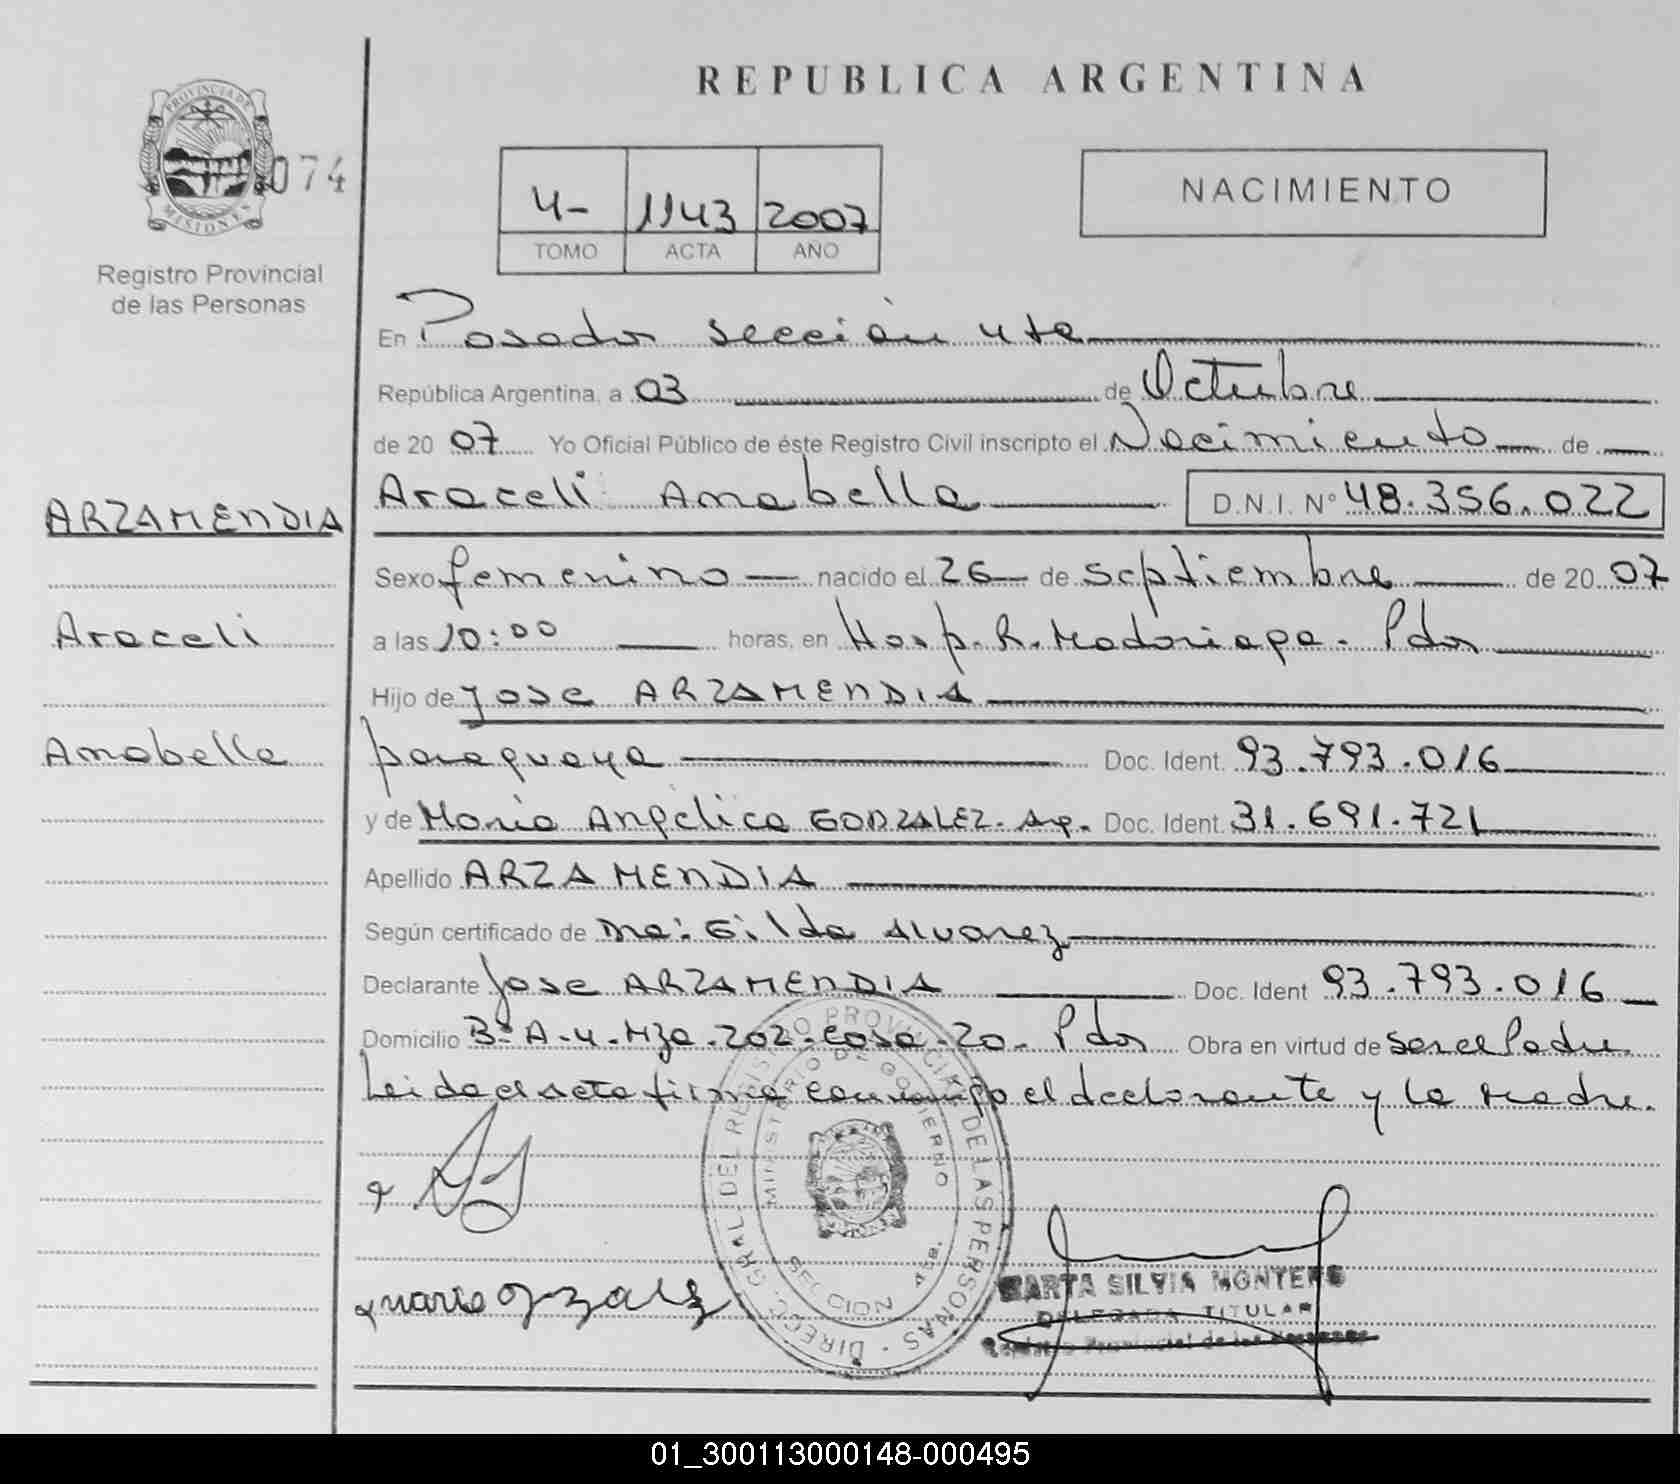 REPUBLICA ARGENTINA
PROVINCIA DE
MISIONES
074
Registro Provincial
de las Personas
4- 1143 2007
TOMO ACTA AÑO
NACIMIENTO
En Posadas sección 4ta
República Argentina, a 03 de Octubre
de 20 07 Yo Oficial Público de éste Registro Civil inscripto el Nacimiento de
ARZAMENDIA
Araceli Anabella D.N.I. N° 48.356.022
Sexo femenino nacido el 26 de septiembre de 20 07
Araceli
a las 10:00 horas, en Hosp. R. Madariaga. Pdas
Hijo de Jose ARZAMENDIA
Anabella
paraguaya Doc. Ident. 93.793.016
y de Maria Angelica GONZALEZ. Ag. Doc. Ident. 31.691.721
Apellido ARZAMENDIA
Según certificado de Dra: Gilda Alvarez
Declarante Jose ARZAMENDIA Doc. Ident 93.793.016
Domicilio B° A-4. Mza. 202. Casa. 20. Pdas Obra en virtud de ser el Padre
Leida el acta firma conmigo el declarante y la Madre.
DIRECC. GRAL. DEL REGISTRO PROVINCIAL DE LAS PERSONAS
MINISTERIO DE GOBIERNO
SECCION 4ta.
MARTA SILVIA MONTERO
DELEGADA TITULAR
Registro Provincial de las Personas
01_300113000148-000495